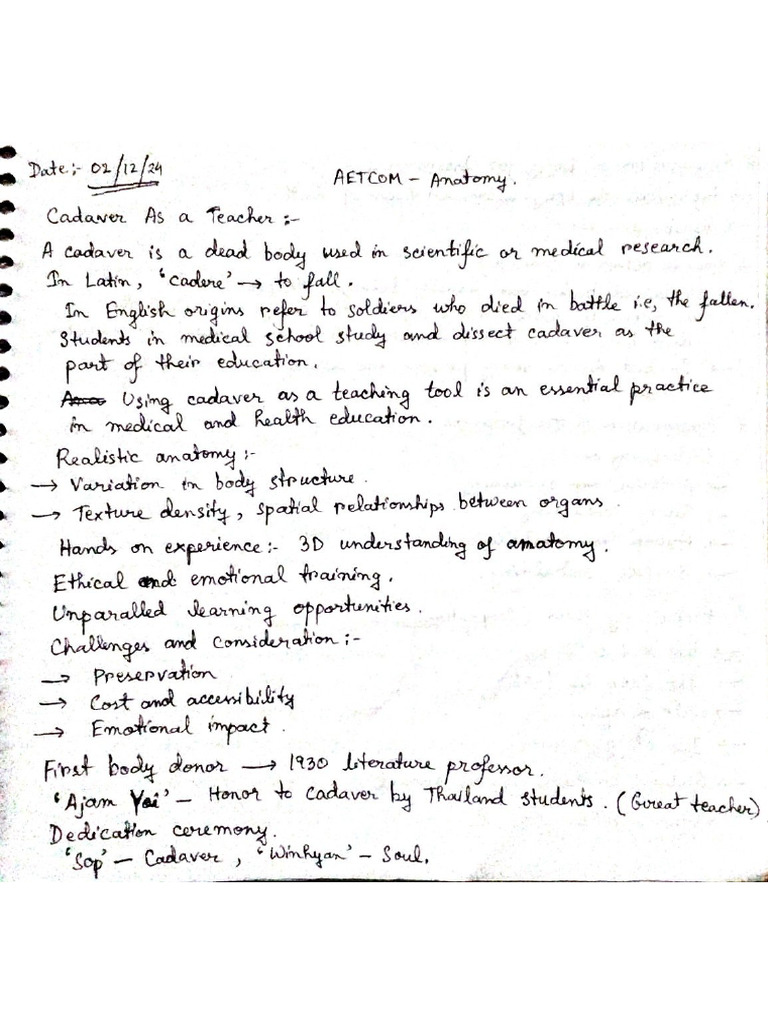 Date:- 02/12/24
AETCOM - Anatomy.
Cadaver As a Teacher :-
A cadaver is a dead body used in scientific or medical research.
In Latin, 'cadere' → to fall.
In English origins refer to soldiers who died in battle i.e, the fallen.
Students in medical school study and dissect cadaver as the
part of their education.
Using cadaver as a teaching tool is an essential practice
in medical and health education.
Realistic anatomy :-
→ Variation in body structure.
→ Texture density, spatial relationships between organs.
Hands on experience:- 3D understanding of amatomy.
Ethical and emotional training.
Unparalled learning opportunities.
Challenges and consideration :-
→ Preservation
→ Cost and accessibility
→ Emotional impact.
First body donor → 1930 literature professor.
'Ajam Yai' - Honor to cadaver by Thailand students. (Great teacher)
Dedication ceremony.
'Sop' - Cadaver, 'Winhyan' - Soul.